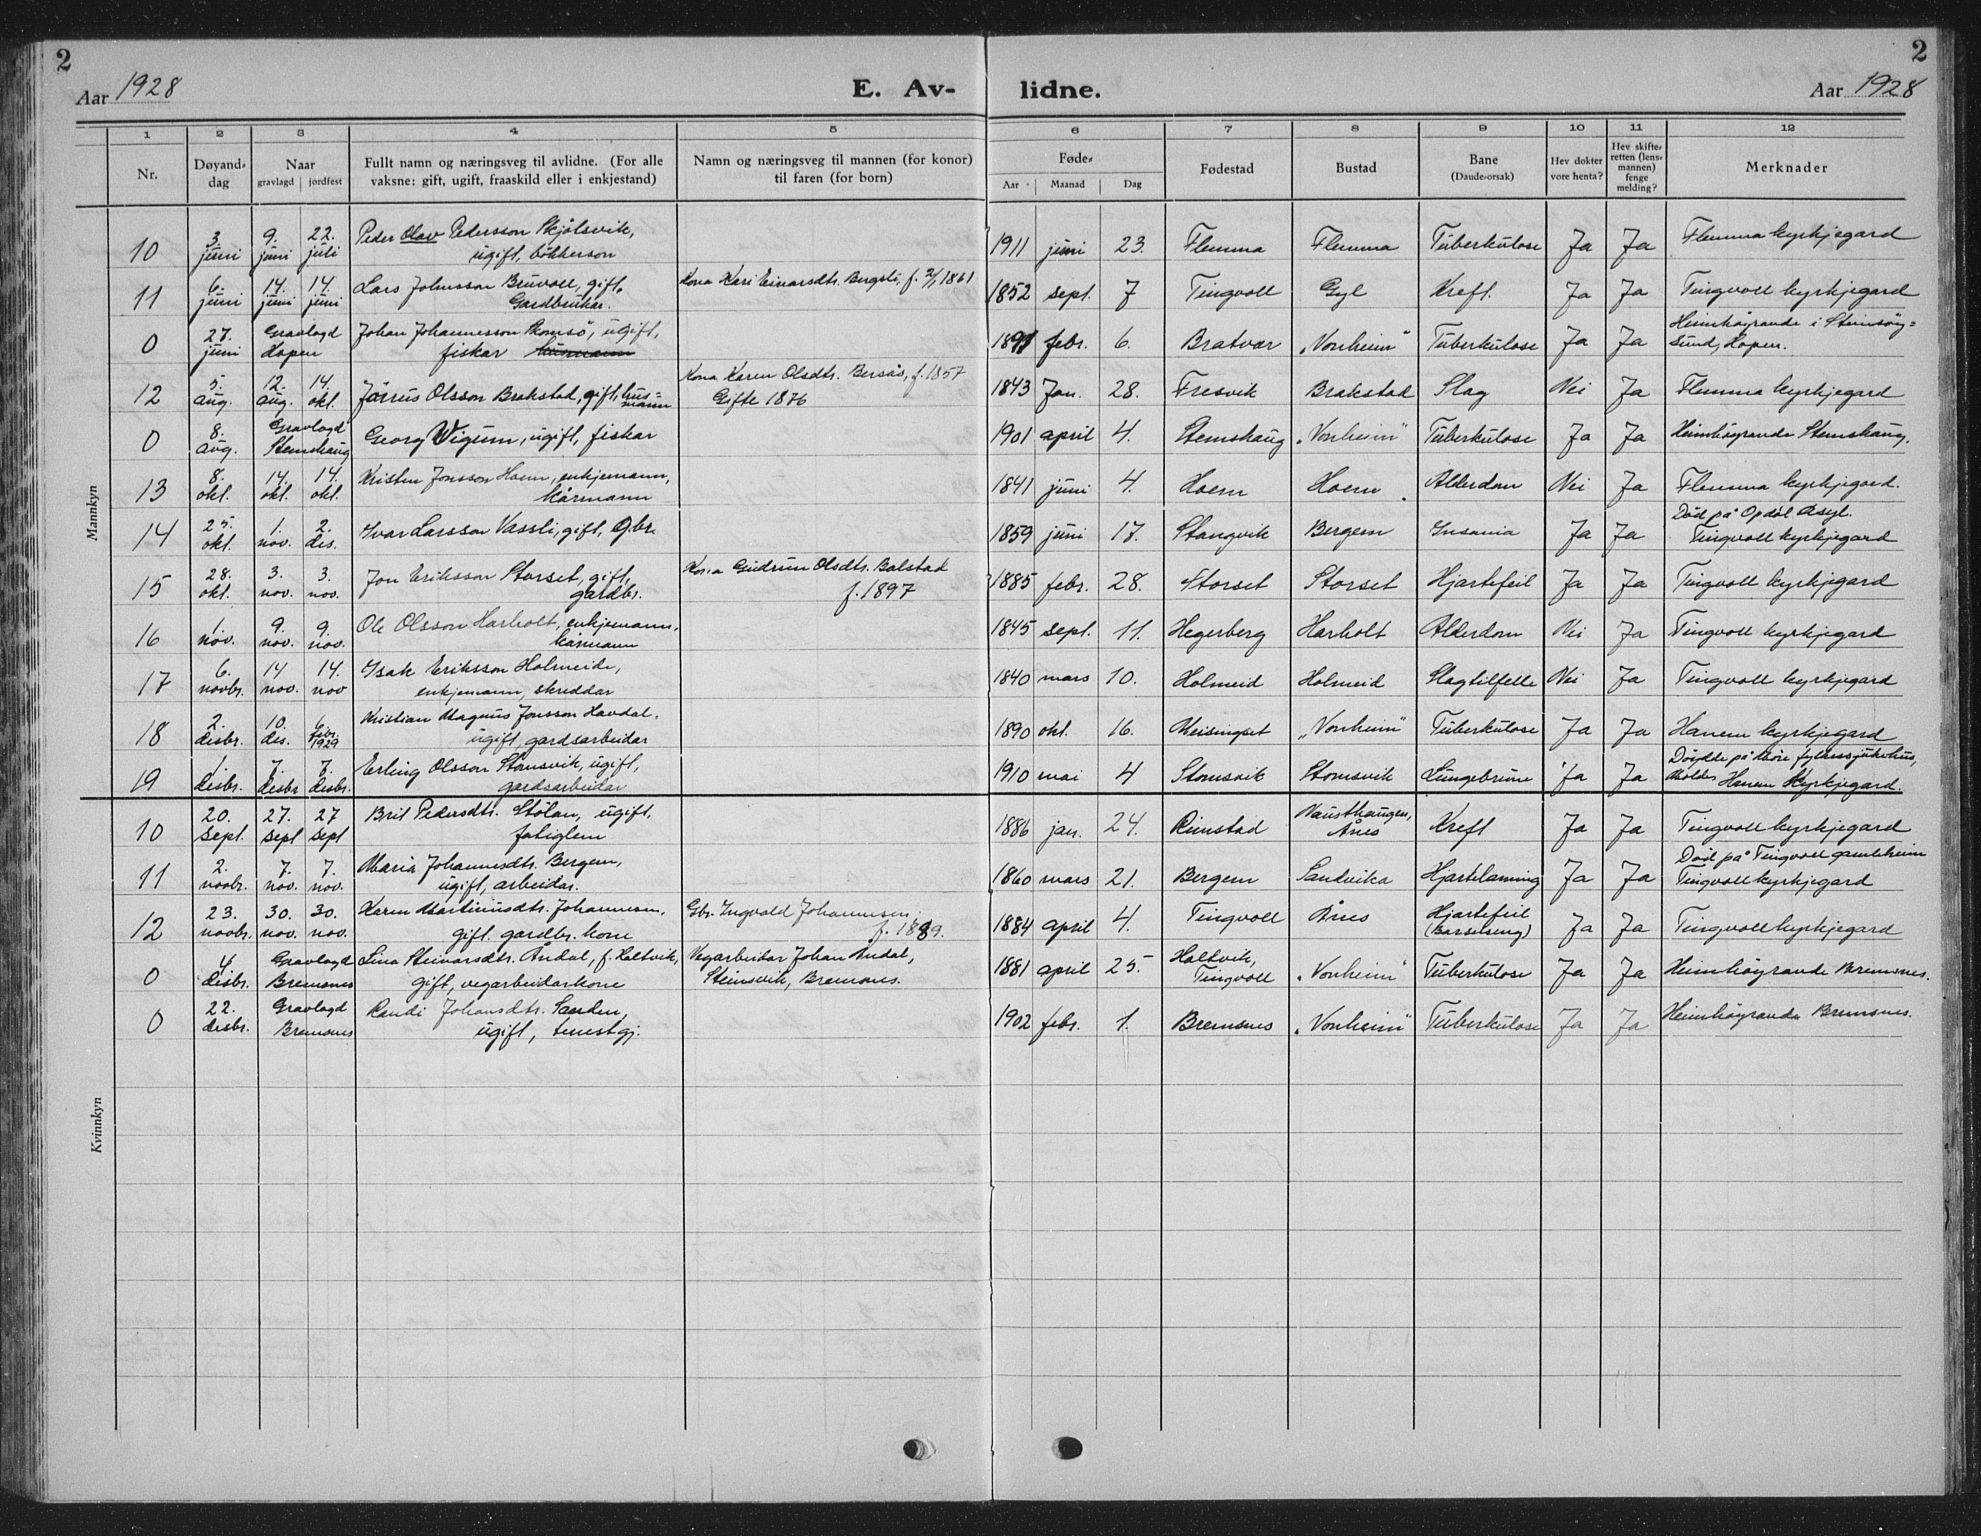 2
Aar 1928
E. Av-
lidne.
Aar 1928
2
1 2 3 4 5 6 7 8 9 10 11 12
Nr.
Døyand-dag
Naar gravlagd jordfest
Fullt namn og næringsveg til avlidne. (For alle vaksne: gift, ugift, fraaskild eller i enkjestand)
Namn og næringsveg til mannen (for konor) til faren (for born)
Føde- Aar Maanad Dag
Fødestad
Bustad
Bane (Daudeorsak)
Hev dokter vore henta?
Hev skifteretten (lensmannen) fenge melding?
Merknader
Mannkyn
10 3. juni 9. juni 22. juli Peder Olav Pedersson Skjølsvik, ugift, bökkerson 1911 juni 23. Flemma Flemma Tuberkulose Ja Ja Flemma kyrkjegard
11 6. juni 14. juni 14. juni Lars Johnsson Bruvoll, gift, Gardbrukar. Kona Kari Einarsdtr. Bergsli, f. 2/1 1861 1852 sept. 7 Tingvoll Gyl Kreft. Ja Ja Tingvoll kyrkjegard
0 27. juni Gravlagd Hopen Johan Johannesson Romsö, ugift, fiskar husmann 1891 febr. 6. Bratvær "Vonheim" Tuberkulose Ja Ja Heimhøyrande i Steinsöysund, Hopen.
12 5. aug. 12. aug. 14. okt. Järrus Olsson Brakstad, gift, husmann Kona Karen Olsdtr. Bersås, f. 1857 Gifte 1876 1843 Jan. 28. Fresvik Brakstad Slag Nei Ja Flemma kyrkjegard
0 8. aug. Gravlagd Stemshaug Georg Vigum, ugift, fiskar 1901 april 4. Stemshaug "Vonheim" Tuberkulose Ja Ja Heimhøyrande Stemshaug.
13 8. okt. 14. okt. 14. okt. Kristen Jonsson Hoem, enkjemann, kårmann 1841 juni 4. Hoem Hoem Alderdom Nei Ja Flemma kyrkjegard.
14 25. okt. 1. nov. 2. des. Ivar Larsson Vassli, gift, gbr. 1859 juni 17. Stangvik Bergem Insania Ja Ja Död på Opdöl Asyl. Tingvoll kyrkjegard
15 28. okt. 3. nov. 3. nov. Jon Eriksson Storset, gift, gardbr. Kona Gudrun Olsdtr. Balstad f. 1897 1885 febr. 28. Storset Storset Hjartefeil Ja Ja Tingvoll kyrkjegard
16 1. nov. 9. nov. 9. nov. Ole Olsson Harholt, enkjemann, kårmann 1845 sept. 11. Hegerberg Harholt Alderdom Nei Ja Tingvoll kyrkjegard
17 6. novbr. 14 nov. 14. nov Isak Eriksson Holmeide, enkjemann, skreddar 1840 mars 10. Holmeid Holmeid Slagtilfelle Nei Ja Tingvoll kyrkjegard
18 2. disbr. 10. des. 6. febr. 1929 Kristian Magnus Jonsson Havdal. ugift, gardsarbeidar 1890 okt. 16. Meisingset "Vonheim" Tuberkulose Ja Ja Hanem kyrkjegard
19 1. disbr. 7. disbr 7. disbr. Erling Olsson Stomsvik, ugift, gardsarbeidar 1910 mai 4 Stomsvik Stomsvik Lungebrune Ja Ja Döydde på Möre fylkessjukehus, Molde. Hanem Kyrkjegard.
Kvinnkyn
10 20. sept. 27. sept 27 sept Brit Pedersdtr. Stölan, ugift, fatiglem 1886 jan. 24. Rimstad Nausthaugen, Årnes Kreft Ja Ja Tingvoll kyrkjegard
11 2. novbr. 7. nov. 7. nov. Maria Johannesdtr. Bergem, ugift, arbeidar. 1860 mars 21. Bergem Sandvika Hjartelaming Ja Ja Död på Tingvoll gamleheim Tingvoll kyrkjegard
12 23. novbr. 30. nov. 30. nov. Karen Martinusdtr. Johannesen, gift gardbr. kone Gbr. Ingvald Johannesen, f. 1889. 1884 april 4. Tingvoll Årnes Hjartefeil (Barselseng) Ja Ja Tingvoll kyrkjegard
0 4 disbr. Gravlagd Bremsnes Lina Steinarsdtr. Åndal, f. Holtvik, gift, vegarbeidarkone Vegarbeidar Johan Åndal, Steinsvik, Bremsnes. 1881 april 25. Holtvik, Tingvoll "Vonheim" Tuberkulose Ja Ja Heimhøyrande Bremsnes.
0 22. disbr. Gravlagd Bremsnes Randi Johansdtr. Sanden, ugift, tenestgj. 1902 febr. 1. Bremsnes "Vonheim" Tuberkulose Ja Ja Heimhøyrande Bremsnes.